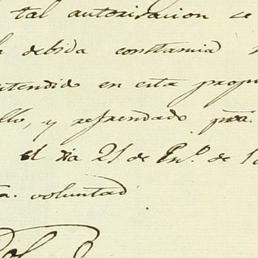 tal autorisacion se
debida constancia
atendido en esta prop
llo, y refrendado por
el dia 21 de En.o de 1
voluntad